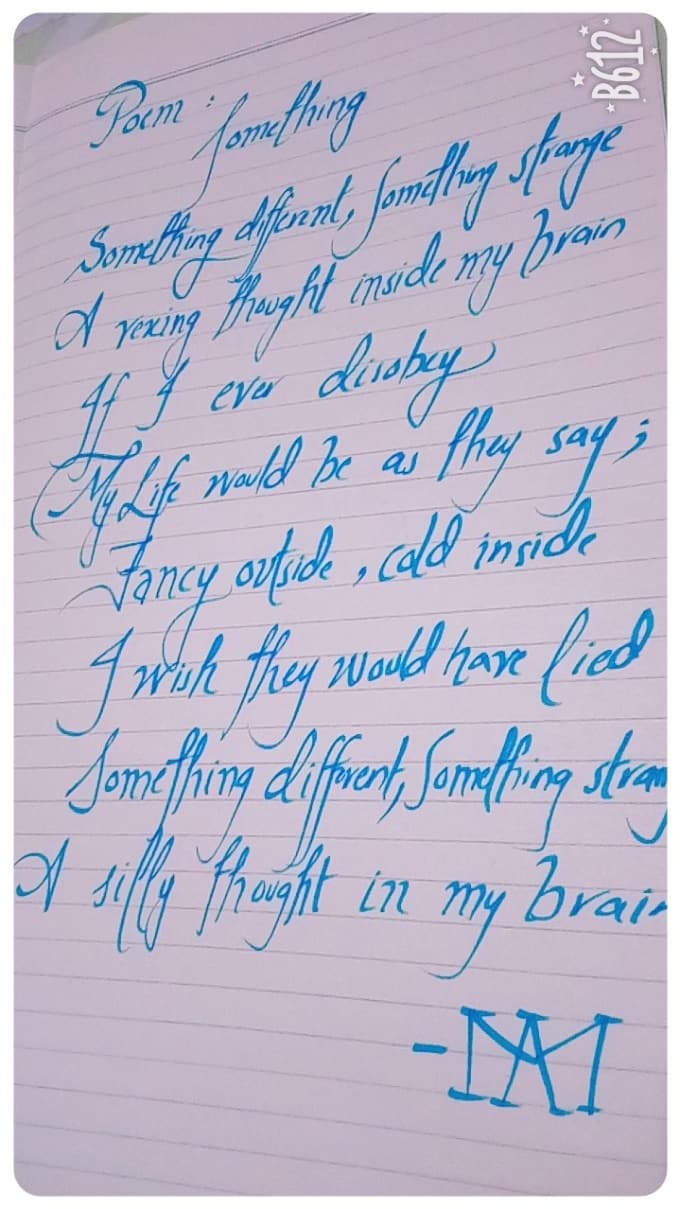 B612
Poem : Something
Something different, Something strange
A vexing thought inside my brain
If I ever disobey
(My Life would be as they say ;
Fancy outside , cold inside
I wish they would have lied
Something different, Something stran
A silly thought in my brain
- MA